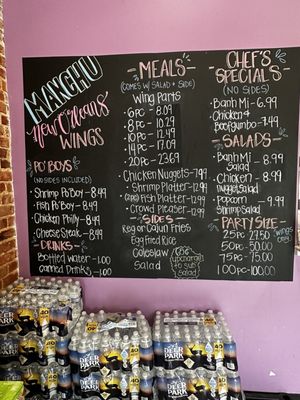 MANCHU
New Orleans
WINGS
PO' BOYS
(NO SIDES INCLUDED)
Shrimp Po'Boy - 8.99
Fish Po'Boy - 8.99
Chicken Philly - 8.99
Cheese Steak - 8.99
DRINKS
Bottled Water - 1.00
Canned Drinks - 1.00
MEALS
(COMES W/ SALAD + SIDE)
Wing Parts
6pc - 8.09
8pc - 10.29
10pc - 12.49
14pc - 17.09
20pc - 23.69
Chicken Nuggets - 7.99
Shrimp Platter - 12.99
Fish Platter - 12.99
Crowd Pleaser - 12.99
SIDES
Reg or Cajun Fries
Egg Fried Rice
Coleslaw
Salad
upcharge
to sub
Salad
CHEF'S
SPECIALS
(NO SIDES)
Banh Mi - 6.99
Chicken &
Beef Gumbo - 7.99
SALADS
Banh Mi - 8.99
Salad
Chicken - 8.99
Nugget Salad
Popcorn - 9.99
Shrimp Salad
PARTY SIZE
25pc 27.50
50pc - 50.00
75pc - 75.00
100pc - 100.00
wings
only
DEER PARK
40
DEER PARK
DEER PARK